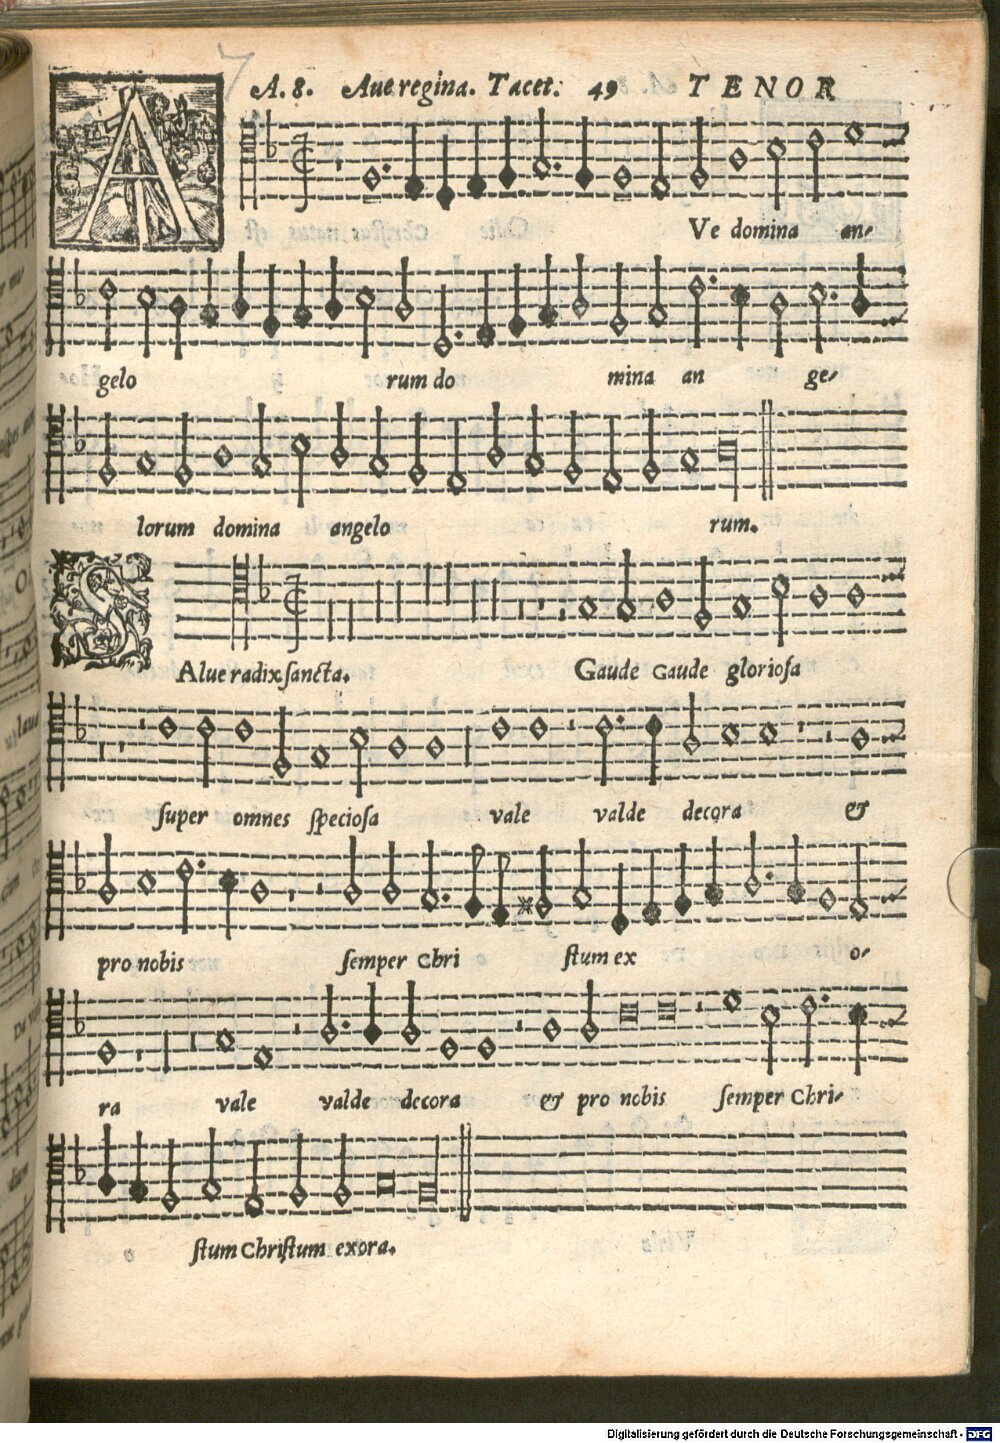 A. 8. Aue regina. Tacet. 49 TENOR
A Ve domina an-
gelo rum do mina an ge-
lorum domina angelo rum.
S Alue radix sancta. Gaude Gaude gloriosa
super omnes speciosa vale valde decora &
pro nobis semper Chri stum ex o-
ra vale valde decora & pro nobis semper Chri-
stum Christum exora.
Digitalisierung gefördert durch die Deutsche Forschungsgemeinschaft - DFG